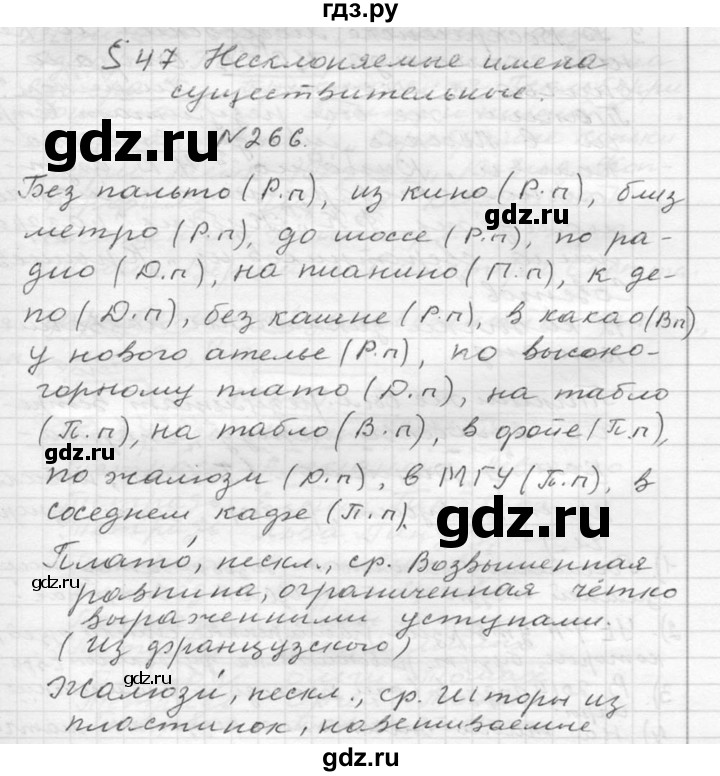 гдз.ру
§ 47 Несклоняемые имена
существительные.
gdz.ru № 266.
Без пальто (Р.п), из кино (Р.п), близ
gdz.ru
метро (Р.п), до шоссе (Р.п), по ра-
дио (Д.п), на пианино (П.п), к де-
по (Д.п), без кашне (Р.п), в какао (Вп)
у нового ателье (Р.п), по высоко-
горному плато (Д.п), на табло
(П.п), на табло (В.п), в фойе (П.п),
по жалюзи (Д.п), в МГУ (П.п), в
соседнем кафе (П.п).
gdz.ru
Плато́, нескл., ср. Возвышенная
gdz.ru
равнина, ограниченная чётко
выраженными уступами.
(Из французского)
Жалюзи́, нескл., ср. Шторы из
пластинок, навешиваемые
gdz.ru